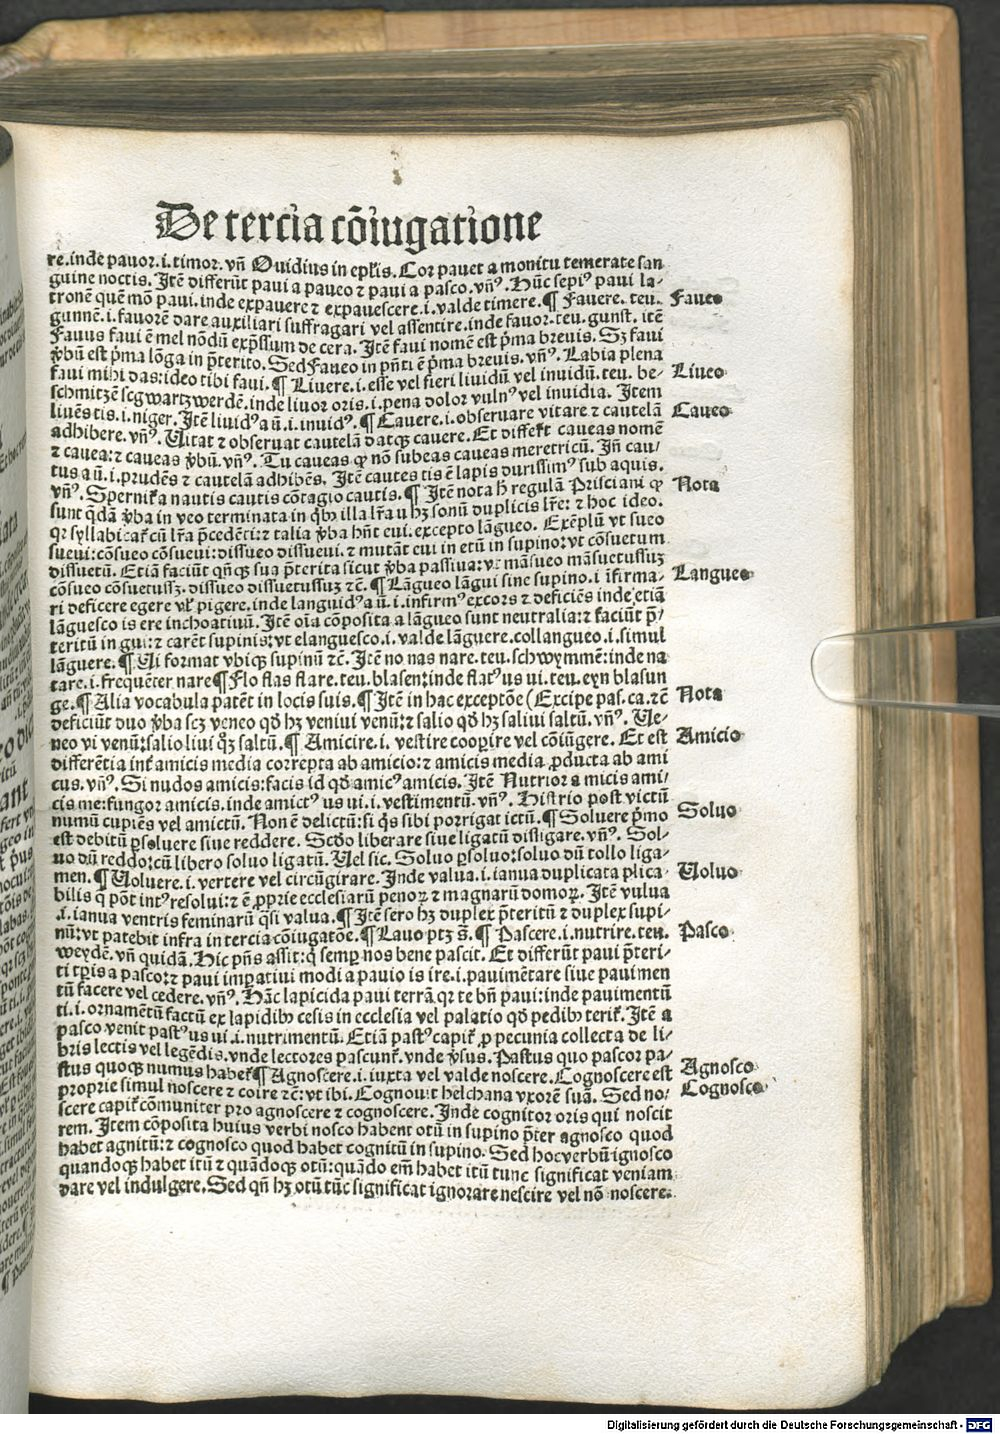 De tercia cōiugatione
re.inde pauor.i.timor. vñ Ouidius in epl'is. Cor pauet a monitu temerate san
guine noctis. Itē differūt paui a paueo ⁊ paui a pasco. vñꝰ. Hūc sepiꝰ paui la-
tronē quē mō paui. inde expauere ⁊ expauescere.i.valde timere.¶ Fauere. teu. Faueo
gunnē.i.fauorē dare auxiliari suffragari vel assentire.inde fauor.teu.gunst. itē
Fauus faui ē mel nōdū exp̄ssum de cera. Itē faui nomē est p̄ma breuis. Sꝫ faui
ꝟbū est p̄ma lōga in p̄terito. Sed Faueo in pn̄ti ē p̄ma breuis. vñꝰ. Labia plena
faui mihi das:ideo tibi faui.¶ Liuere.i.esse vel fieri liuidū vel inuidū.teu. be- Liueo
schmitzē scgwartzwerdē.inde liuor oris.i.pena dolor vulnꝰ vel inuidia. Item
liuēs tis.i.niger. Itē liuidꝰ a ū.i.inuidꝰ.¶ Cauere.i.obseruare vitare ⁊ cautelā Caueo
adhibere. vñꝰ. Uitat ⁊ obseruat cautelā datqꝫ cauere. Et differt caueas nomē
⁊ cauea:⁊ caueas ꝟbū. vñꝰ. Tu caueas ꝙ nō subeas caueas meretricū. Iñ cau/
tus a ū.i.prudēs ⁊ cautelā adhibēs. Itē cautes tis ē lapis durissimꝰ sub aquis.
vñꝰ. Spernit̉a nautis cautis cōtagio cautis.¶ Itē nota h̄ regulā Prisciani ꝙ Nota
sunt q̄dā ꝟba in veo terminata in q̄bꝰ illa lr̄a u hꝫ sonū duplicis lr̄e: ⁊ hoc ideo.
qꝛ syllabicat̉ cū lr̄a p̄cedēti:⁊ talia ꝟba hn̄t cui.excepto lāgueo. Exēplū vt sueo
sueui:cōsueo cōsueui:dissueo dissueui.⁊ mutāt cui in etū in supino:vt cōsuetum
dissuetū. Etiā faciūt qn̄qꝫ sua p̄terita sicut ꝟba passiua:vt māsueo māsuetussuꝫ
cōsueo cōsuetussꝫ.dissueo dissuetussuꝫ ⁊c̄.¶ Lāgueo lāgui sine supino.i īfirma/ Langueo
ri deficere egere vl' pigere.inde languidꝰ a ū.i.infirmꝰ excors ⁊ deficiēs inde etiā
lāguesco is ere inchoatiuū. Itē oīa cōposita a lāgueo sunt neutralia:⁊ faciūt p̄/
teritū in gui:⁊ carēt supinis:vt elanguesco.i.valde lāguere.collangueo.i.simul
lāguere.¶ Ui format vbiqꝫ supinū ⁊c̄. Itē no nas nare.teu.schwymmē:inde na
tare.i.frequēter nare¶ Flo flas flare.teu.blasen:inde flatꝰ us ui.teu.eyn blasun
ge.¶ Alia vocabula patēt in locis suis.¶ Itē in hac exceptōe (Excipe pas.ca.⁊c̄ Nota
deficiūt duo ꝟba scꝫ veneo qd̄ hꝫ veniui venū:⁊ salio qd̄ hꝫ saliui saltū. vñꝰ. Ue-
neo vi venū:salio liui q̄ꝫ saltū.¶ Amicire.i. vestire coopire vel cōiūgere. Et est Amicio
differētia int̉ amicis media correpta ab amicio:⁊ amicis media ꝓducta ab ami
cus. vñꝰ. Si nudos amicis:facis id qd̄ amicꝰ amicis. Itē Nutrior a micis ami/
cis me:fungor amicis.inde amictꝰ us ui.i.vestimentū. vñꝰ. Histrio post victū
numū cupiēs vel amictū. Non ē delictū:si q̄s sibi porrigat ictū.¶ Soluere p̄mo Soluo
est debitū ꝑsoluere siue reddere. Scd̄o liberare siue ligatū dissigare. vñꝰ. Sol-
uo dū reddo:cū libero soluo ligatū. Uel sic. Soluo ꝑsoluo:soluo dū tollo liga-
men.¶ Uoluere.i. vertere vel circūgirare. Inde valua.i.ianua duplicata plica- Uoluo
bilis q pōt intꝰ resolui:⁊ ē ꝓprie ecclesiarū penoꝝ ⁊ magnarū domoꝝ. Itē vulua
.i.ianua ventris feminarū q̄si valua.¶ Itē sero hꝫ duplex p̄teritū ⁊ duplex supi/
nū:vt patebit infra in tercia cōiugatōe.¶ Lauo ptꝫ s̄.¶ Pascere.i.nutrire. teu. Pasco
weydē. vñ quidā. Hic pn̄s assit:q̄ semꝑ nos bene pascit. Et differūt paui p̄teri/
ti tꝑis a pasco:⁊ paui imꝑatiui modi a pauio is ire.i.pauimētare siue pauimen
tū facere vel cedere. vñꝰ. Hāc lapicida paui terrā qꝛ te bn̄ paui:inde pauimentū
ti.i.ornamētū factū ex lapidibꝰ cesis in ecclesia vel palatio qd̄ pedibꝰ terit̉. Itē a
pasco venit pastꝰ us ui.i.nutrimentū. Etiā pastꝰ capit̉ ꝓ pecunia collecta de li/
bris lectis vel legēdis.vnde lectores pascunt̉. vnde ꝟsus. Pastus quo pascor pa/
stus quoqꝫ numus habet̉¶ Agnoscere.i.iuxta vel valde noscere. Cognoscere est Agnosco
proprie simul noscere ⁊ coire ⁊c̄:vt ibi. Cognouit helchana vxorē suā. Sed no/ Cognosco
scere capit̉ cōmuniter pro agnoscere ⁊ cognoscere. Inde cognitor oris qui noscit
rem. Item cōposita huius verbi nosco habent otū in supino p̄ter agnosco quod
habet agnitū:⁊ cognosco quod habet cognitū in supino. Sed hoc verbū ignosco
quandoqꝫ habet itū ⁊ quādoqꝫ otū:quādo em̄ habet itū tunc significat veniam
dare vel indulgere. Sed qn̄ hꝫ otū tūc significat ignorare nescire vel nō noscere.
Digitalisierung gefördert durch die Deutsche Forschungsgemeinschaft - DFG